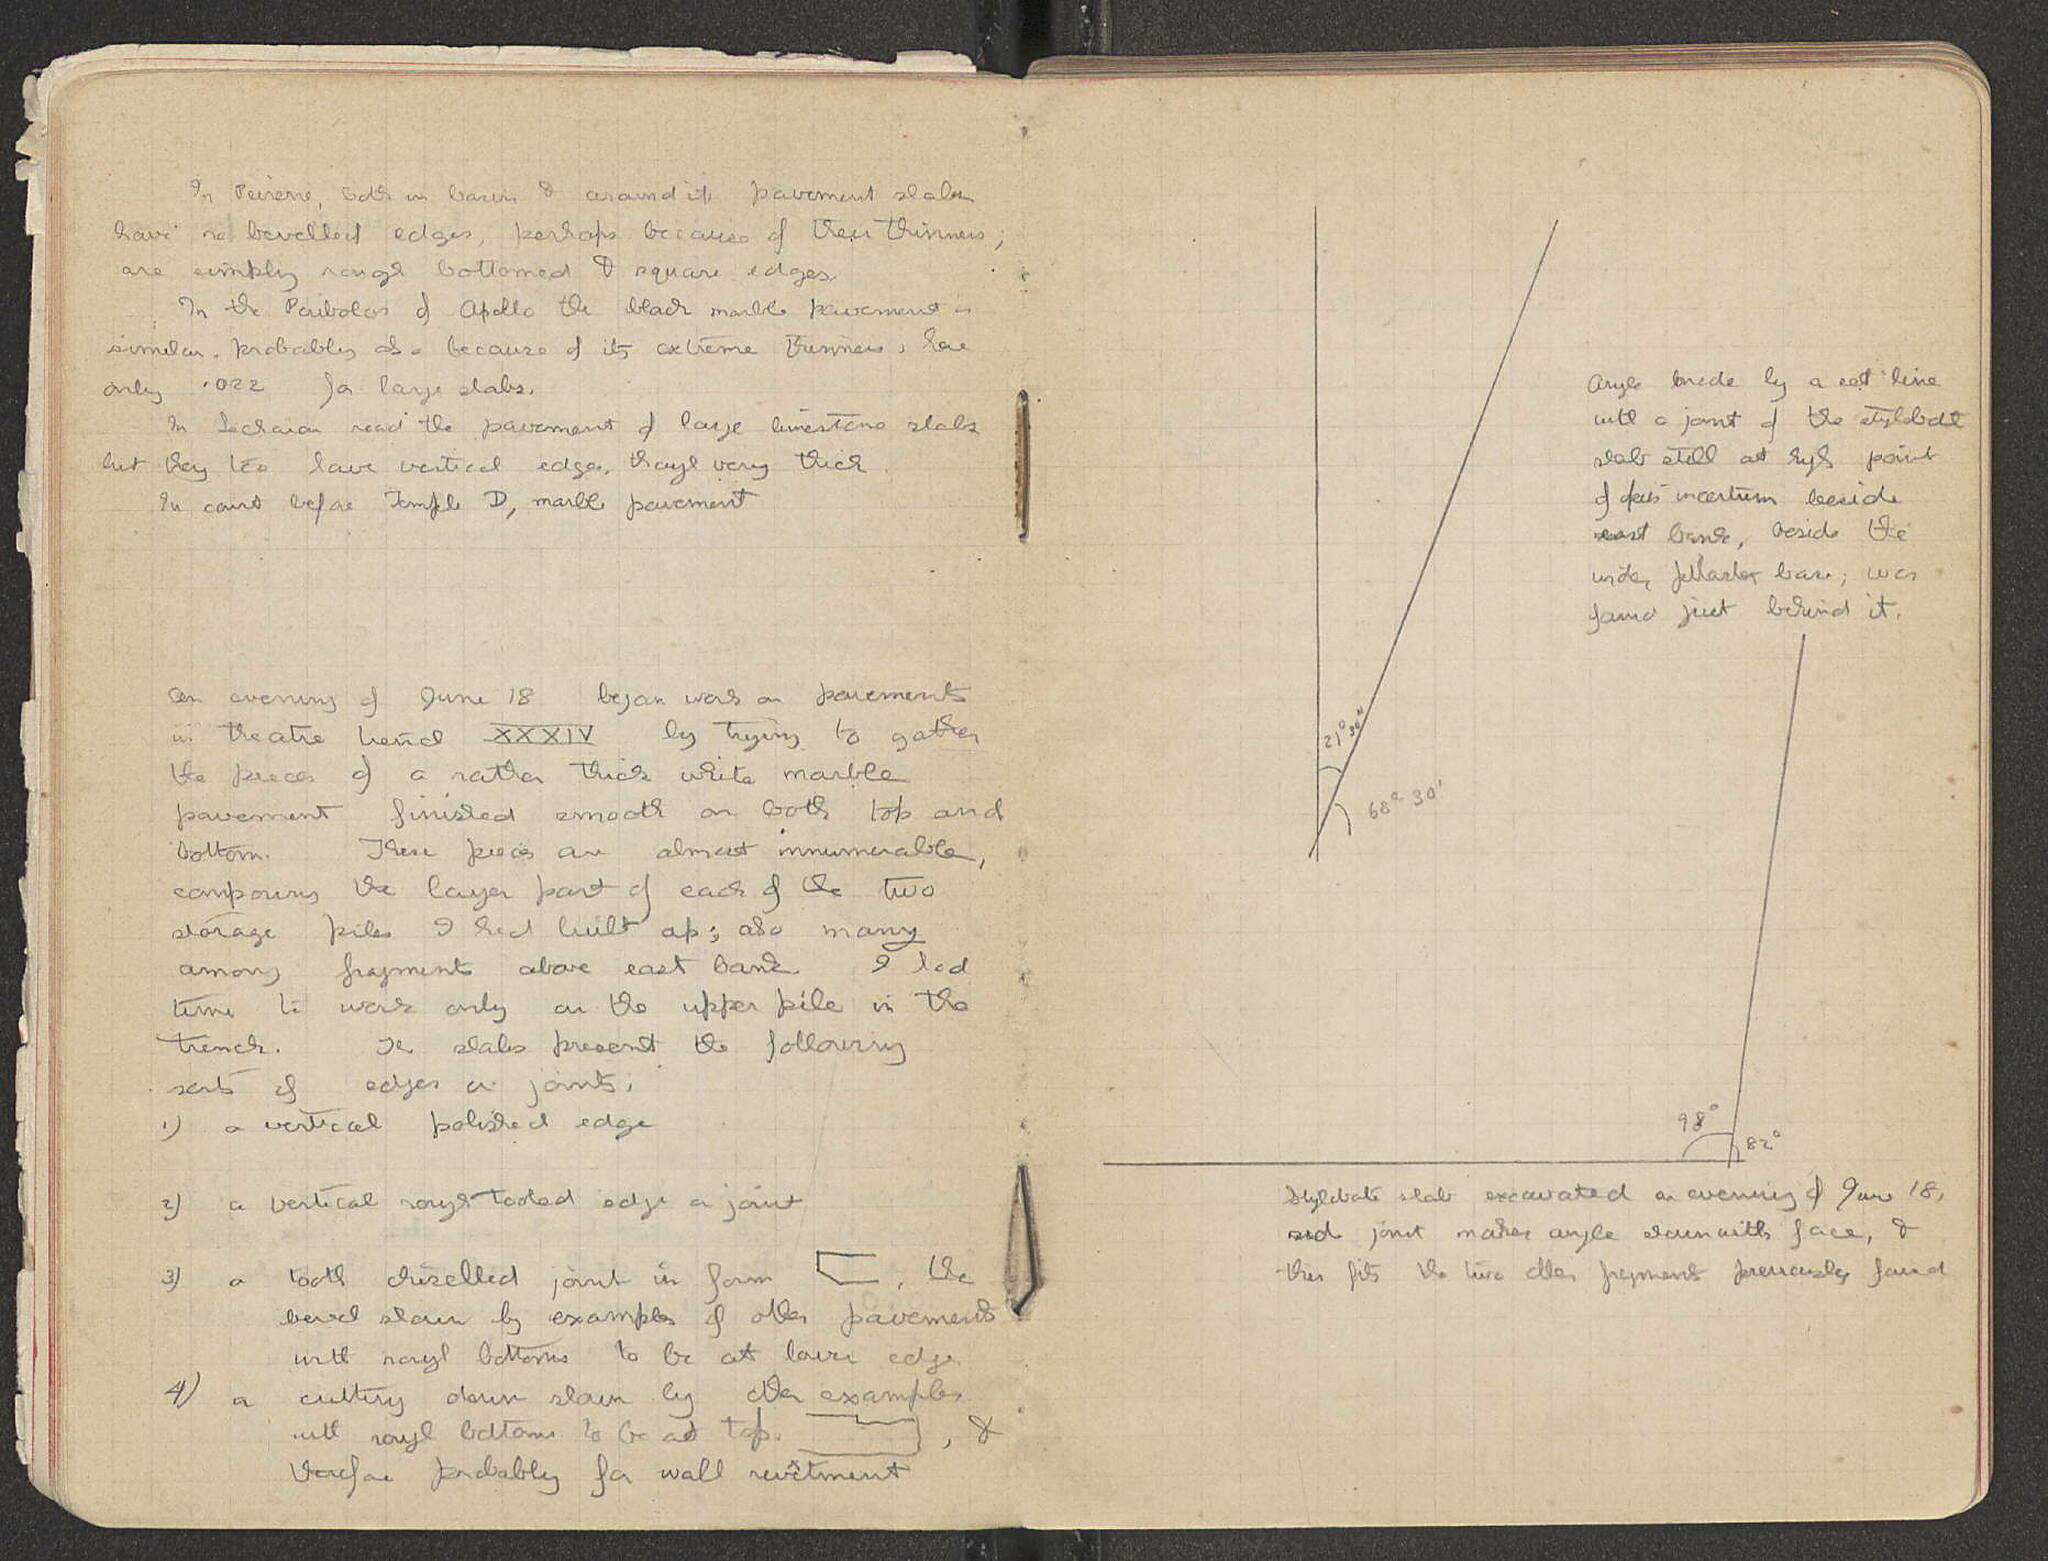 In Peirene, both in basin & around it, pavement slabs
have no bevelled edges, perhaps because of their thinness;
are simply rough bottomed & square edges.
In the Peribolos of Apollo the black marble pavement is
similar, probably also because of its extreme thinness, here
only .022 for large slabs.
In Lechaion road the pavement of large limestone slabs
but they too have vertical edges, though very thick.
In court before Temple D, marble pavement
On evening of June 18 began work on pavements
in theatre trench XXXIV by trying to gather
the pieces of a rather thick white marble
pavement finished smooth on both top and
bottom. These pieces are almost innumerable,
composing the larger part of each of the two
storage piles I had built up; also many
among fragments above east bank. I had
time to work only on the upper pile in the
trench. The slabs present the following
sorts of edges or joints;
1) a vertical polished edge
2) a vertical rough tooled edge or joint
3) a tooth chiselled joint in form , the
bevel shown by examples of other pavements
with rough bottoms to be at lower edge
4) a cutting down shown by other examples
with rough bottoms to be at top. , &
therefore probably for wall revêtment
Angle made by a set line
with a joint of the stylobate
slab still at high point
of opus incertum beside
east bank, beside the
under base; was
found just behind it.
21° 30"
68° 30'
98°
82°
Stylobate slab excavated on evening of June 18,
joint makes angle shown with face, &
thus fits the two other fragments previously found